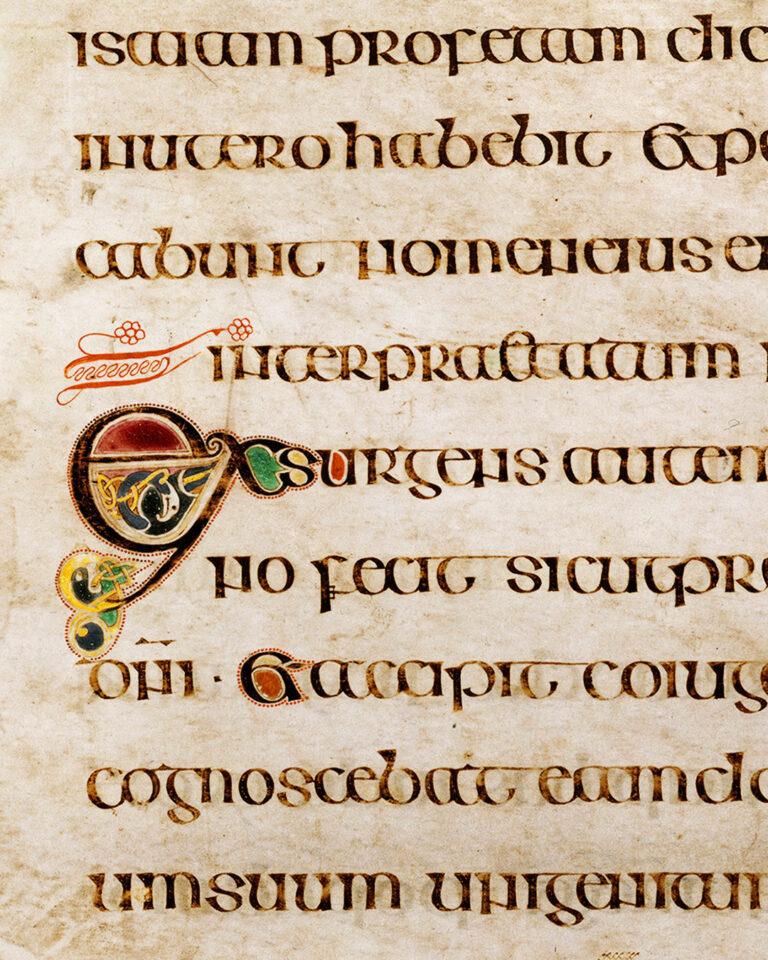 isaiam profetam dic
inutero habebit & p
cabunt nomen eius e
interpraetatum
Exsurgens autem
no fecit sicut pr
dn̄i · & accipit coiug
cognoscebat eam do
umsuum unigenitu